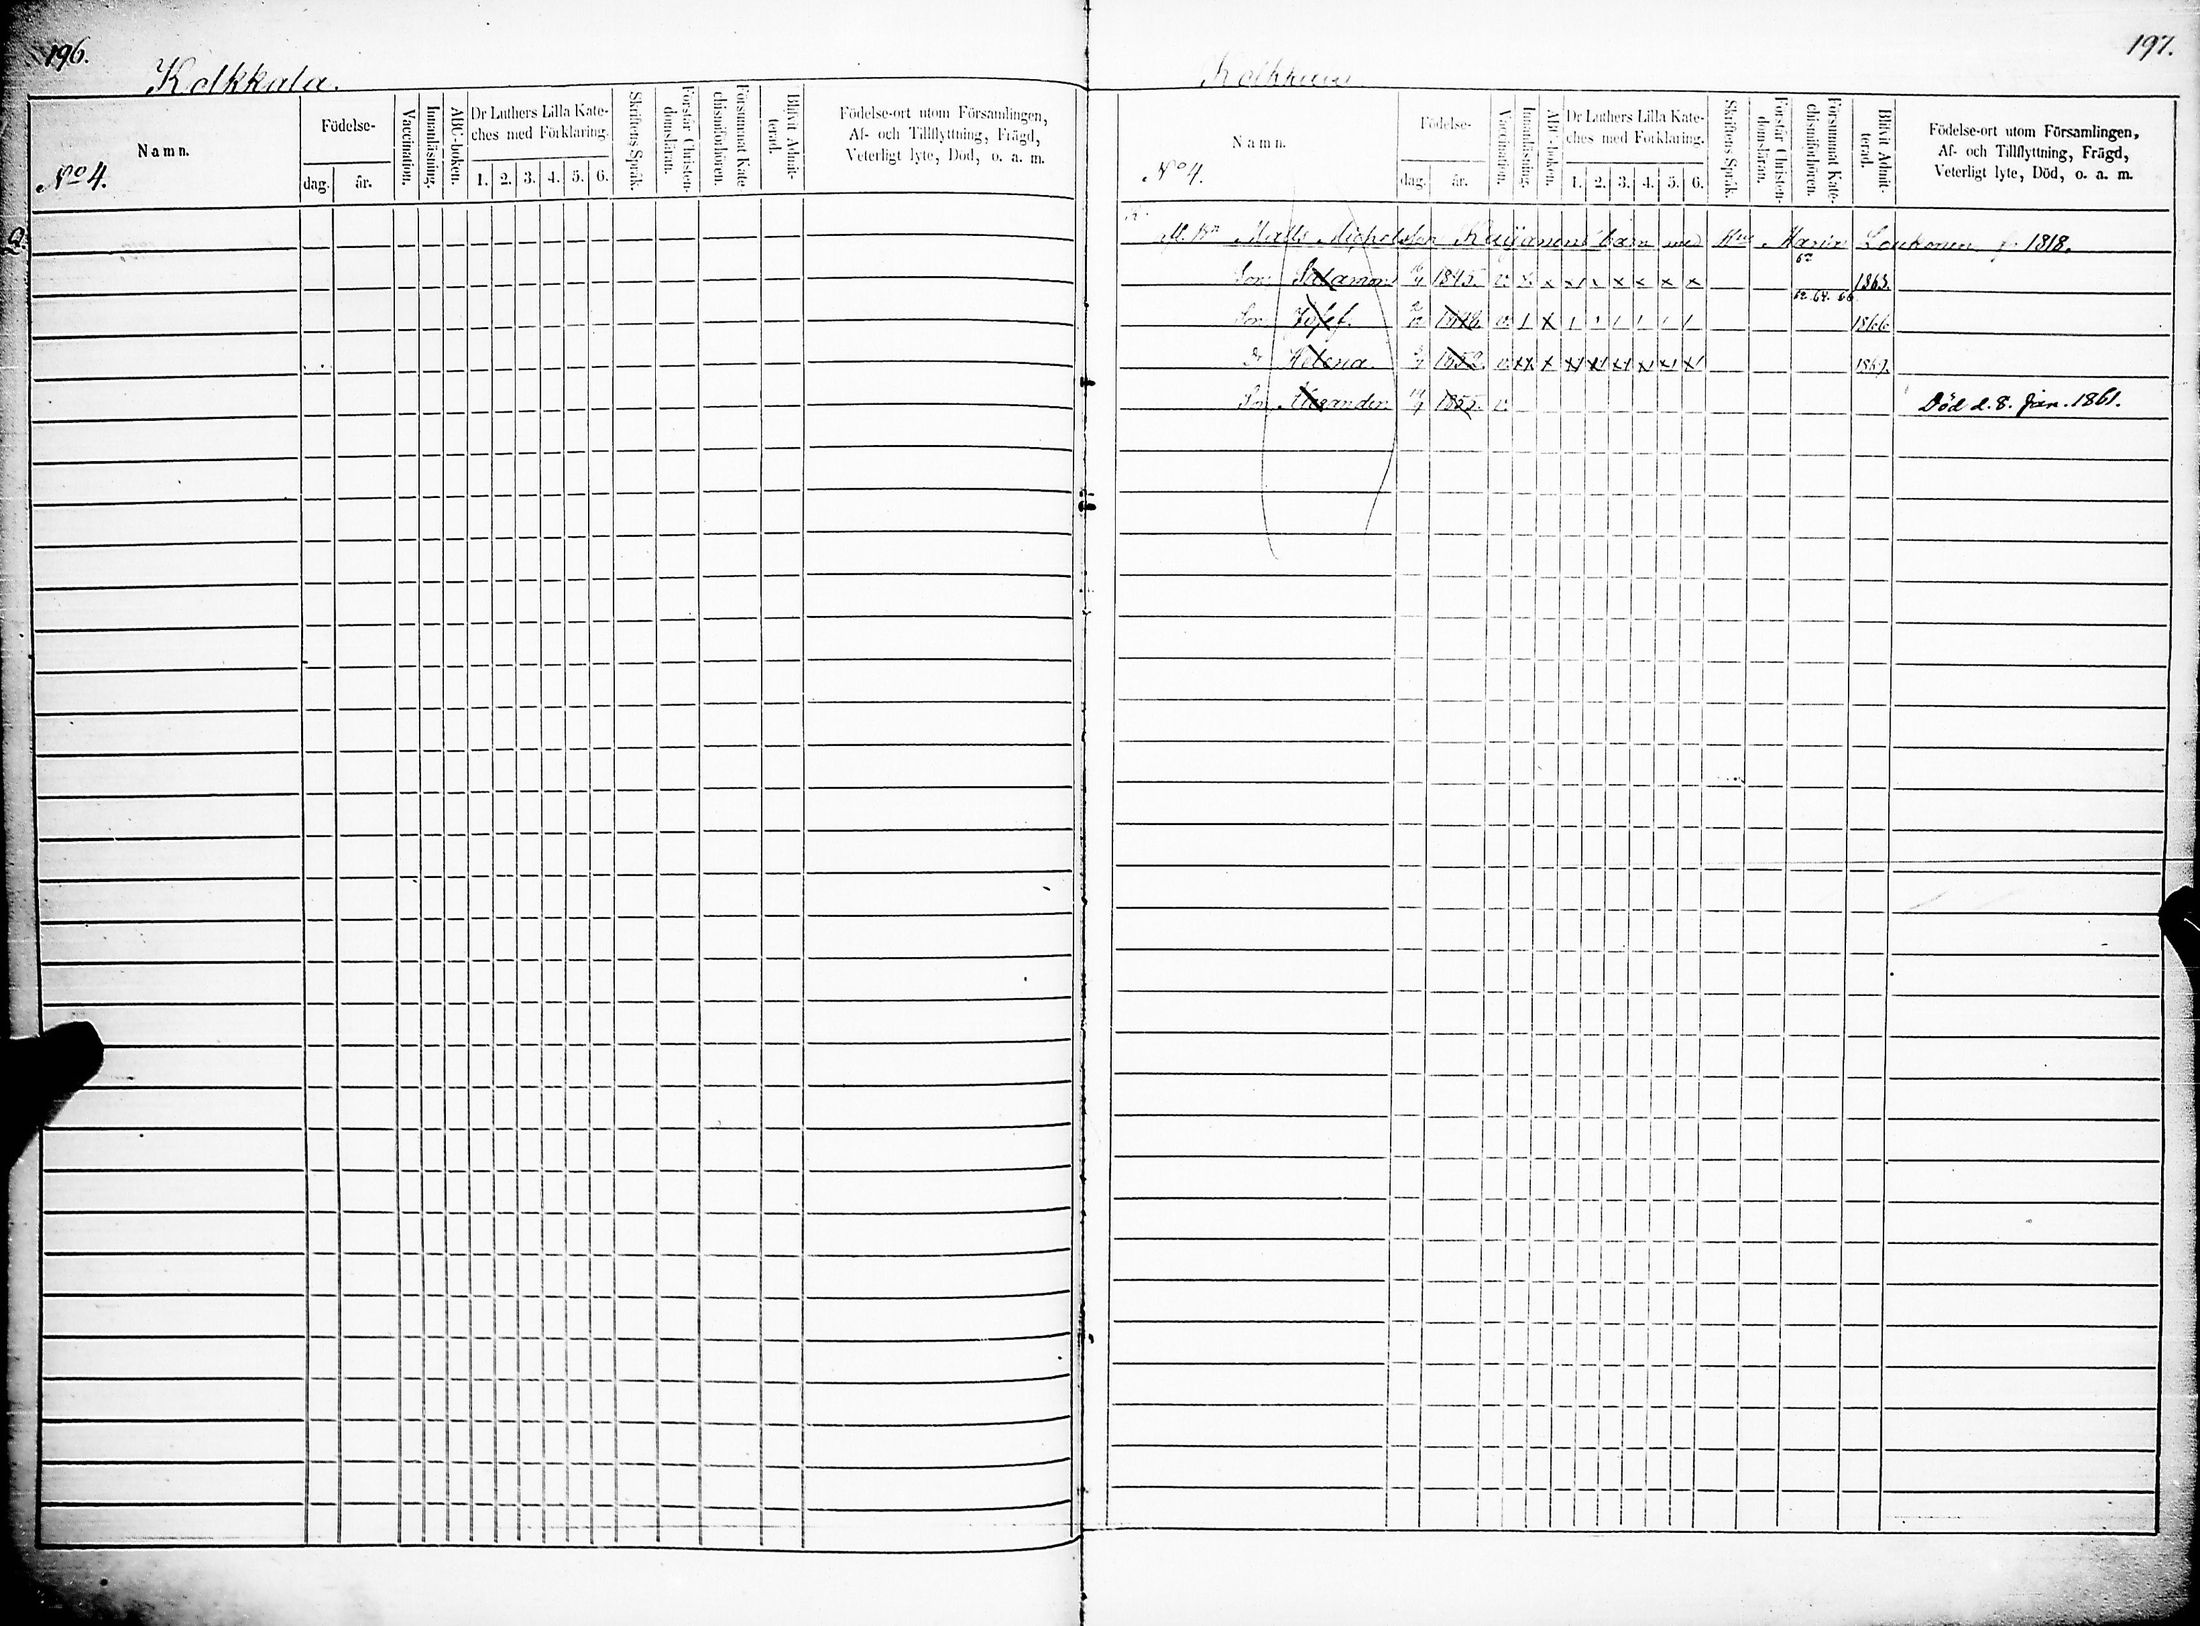 196.
Kolkkala.
Namn.
No 4.
Födelse-
dag. år.
Vaccination.
Innanläsning.
ABC-boken.
Dr Luthers Lilla Kate-
ches med Förklaring.
1. 2. 3. 4. 5. 6.
Skriftens Språk.
Förstår Christen-
domsläran.
Försummat Kate-
chismiförhören.
Blifvit Admit-
terad.
Födelse-ort utom Församlingen,
Af- och Tillflyttning, Frägd,
Veterligt lyte, Död, o. a. m.
197.
Namn.
No 4.
Födelse-
dag. år.
Vaccination.
Innanläsning.
ABC-boken.
Dr Luthers Lilla Kate-
ches med Förklaring.
1. 2. 3. 4. 5. 6.
Skriftens Språk.
Förstår Christen-
domsläran.
Försummat Kate-
chismiförhören.
Blifvit Admit-
terad.
Födelse-ort utom Församlingen,
Af- och Tillflyttning, Frägd,
Veterligt lyte, Död, o. a. m.
Matts barn med Maria Loukonen f. 1818.
Son Salamon 1845. v. 62 1863.
Son Josef. 1848. v. 62. 64. 66 1866.
Dr Helena. v. 1869.
Son Alexander v. Död d. 8. Jan. 1861.